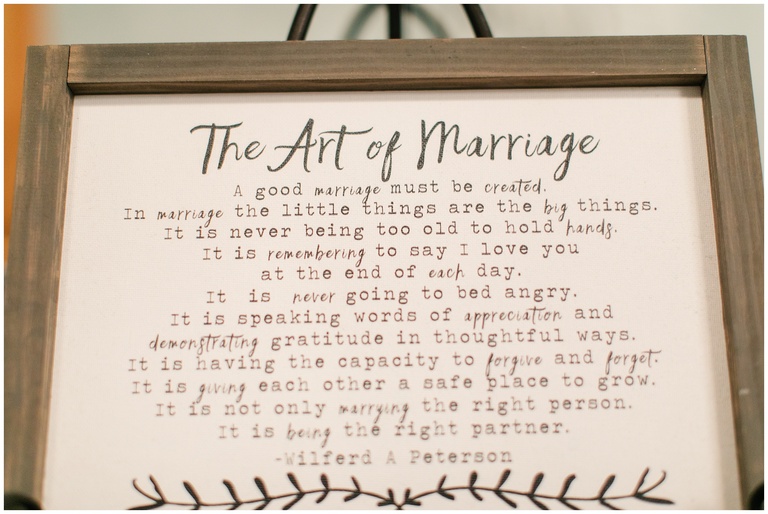 The Art of Marriage
A good marriage must be created.
In marriage the little things are the big things.
It is never being too old to hold hands.
It is remembering to say I love you
at the end of each day.
It is never going to bed angry.
It is speaking words of appreciation and
demonstrating gratitude in thoughtful ways.
It is having the capacity to forgive and forget.
It is giving each other a safe place to grow.
It is not only marrying the right person.
It is being the right partner.
-Wilferd A Peterson